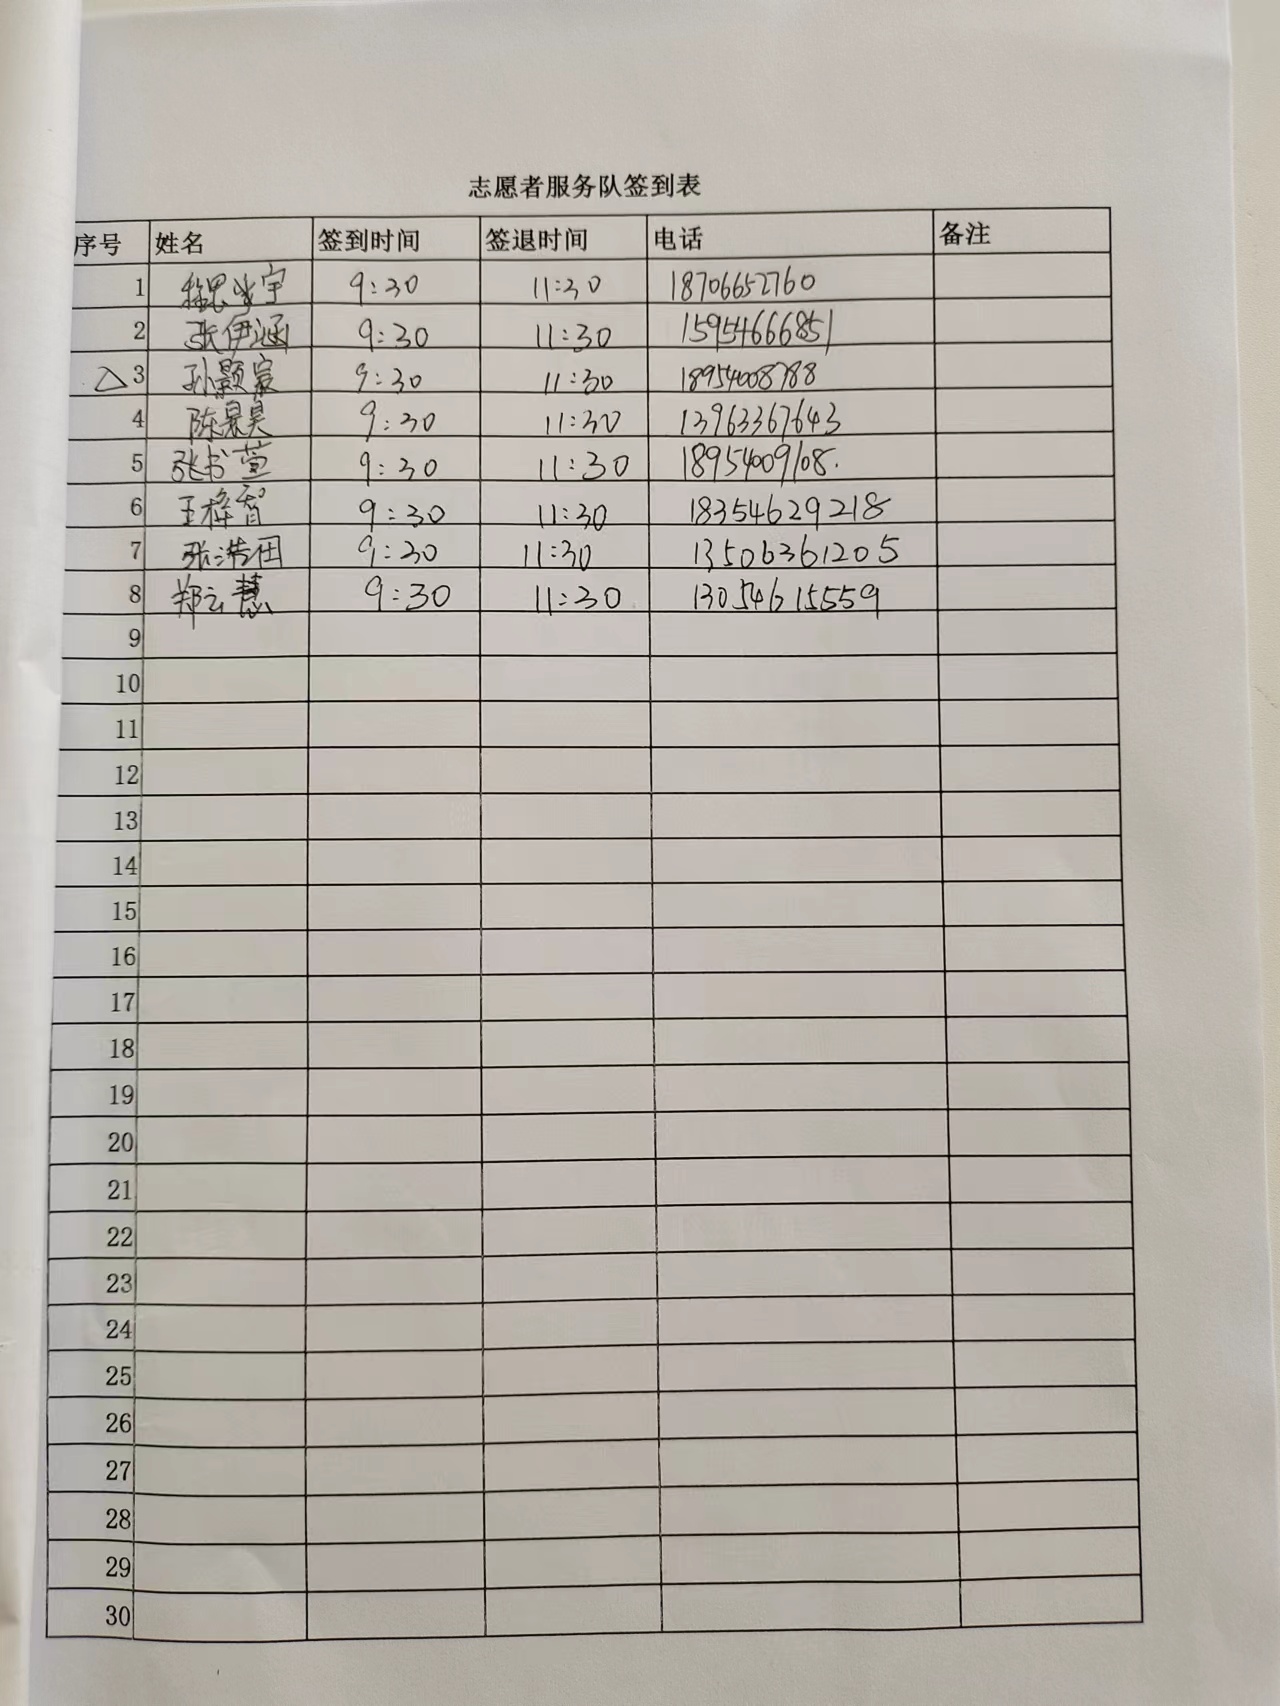 志愿者服务队签到表
序号 姓名 签到时间 签退时间 电话 备注
1 9:30 11:30 18706652760
2 张伊涵 9:30 11:30 15954666851
△ 3 孙颢宸 9:30 11:30 18954008788
4 陈昊 9:30 11:30 13963367643
5 张书萱 9:30 11:30 18954009108.
6 王梓智 9:30 11:30 18354629218
7 张浩田 9:30 11:30 13506361205
8 郑云慧 9:30 11:30 13054615559
9
10
11
12
13
14
15
16
17
18
19
20
21
22
23
24
25
26
27
28
29
30